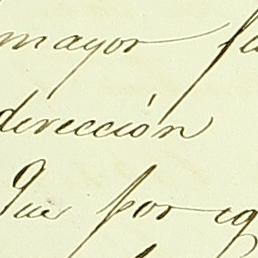 mayor
dirección
Que por